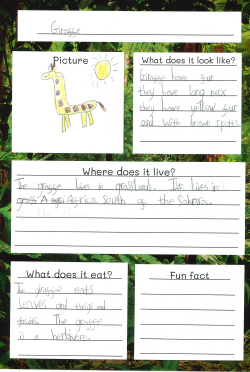 Giraffe
Picture
What does it look like?
Giraffe have fur
they have long nax
they have yellow fur
and with brown spots
Where does it live?
The giraffe lives in grasslands. It lives in
Africa South of the Sahara.
What does it eat?
The giraffe eats
leaves and twigs and
fruits. The giraffe
is a herbivore.
Fun fact